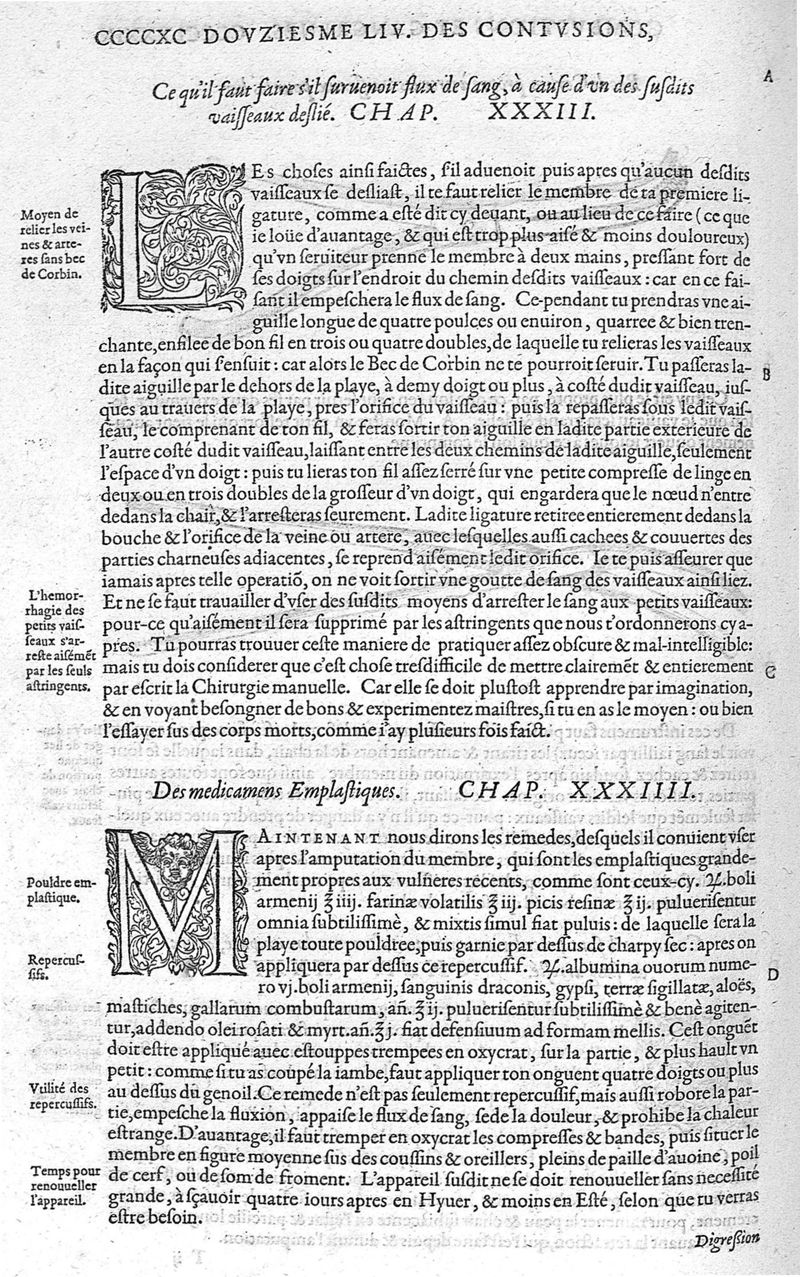 CCCCXC DOVZIESME LIV. DES CONTVSIONS,
A
Ce qu'il faut faire s'il suruenoit flux de sang, à cause d'vn des susdits
vaisseaux deslié. CHAP. XXXIII.
LEs choses ainsi faictes, s'il aduenoit puis apres qu'aucun desdits
vaisseaux se desliast, il te faut relier le membre de ta premiere li-
Moyen de
relier les vei-
nes & arte-
res sans bec
de Corbin.
gature, comme a esté dit cy deuant, ou au lieu de ce faire (ce que
ie loüe d'auantage, & qui est trop plus aisé & moins douloureux)
qu'vn seruiteur prenne le membre à deux mains, pressant fort de
ses doigts sur l'endroit du chemin desdits vaisseaux : car en ce fai-
sant il empeschera le flux de sang. Ce-pendant tu prendras vne ai-
guille longue de quatre poulces ou enuiron, quarree & bien tren-
chante, enfilee de bon fil en trois ou quatre doubles, de laquelle tu relieras les vaisseaux
en la façon qui s'ensuit : car alors le Bec de Corbin ne te pourroit seruir. Tu passeras la-
B
dite aiguille par le dehors de la playe, à demy doigt ou plus, à costé dudit vaisseau, ius-
ques au trauers de la playe, pres l'orifice du vaisseau : puis la repasseras sous ledit vais-
seau, le comprenant de ton fil, & feras sortir ton aiguille en ladite partie exterieure de
l'autre costé dudit vaisseau, laissant entre les deux chemins de ladite aiguille, seulement
l'espace d'vn doigt : puis tu lieras ton fil assez serré sur vne petite compresse de linge en
deux ou en trois doubles de la grosseur d'vn doigt, qui engardera que le nœud n'entre
dedans la chair, & l'arresteras seurement. Ladite ligature retiree entierement dedans la
bouche & l'orifice de la veine ou artere, auec lesquelles aussi cachees & couuertes des
parties charneuses adiacentes, se reprend aisément ledit orifice. Ie te puis asseurer que
iamais apres telle operatiõ, on ne voit sortir vne goutte de sang des vaisseaux ainsi liez.
L'hemor-
rhagie des
petits vais-
seaux s'ar-
reste aisémẽt
par les seuls
astringents.
Et ne se faut trauailler d'vser des susdits moyens d'arrester le sang aux petits vaisseaux:
pour-ce qu'aisément il sera supprimé par les astringents que nous t'ordonnerons cy a-
pres. Tu pourras trouuer ceste maniere de pratiquer assez obscure & mal-intelligible:
mais tu dois considerer que c'est chose tresdifficile de mettre clairemẽt & entierement
C
par escrit la Chirurgie manuelle. Car elle se doit plustost apprendre par imagination,
& en voyant besongner de bons & experimentez maistres, si tu en as le moyen : ou bien
l'essayer sus des corps morts, comme i'ay plusieurs fois faict.
Des medicamens Emplastiques. CHAP. XXXIIII.
MAINTENANT nous dirons les remedes, desquels il conuient vser
apres l'amputation du membre, qui sont les emplastiques grande-
Pouldre em-
plastique.
ment propres aux vulneres recents, comme sont ceux-cy. ℞. boli
armenij ℥ iiij. farinæ volatilis ℥ iij. picis resinæ ℥ ij. puluerisentur
omnia subtilissimè, & mixtis simul fiat puluis : de laquelle sera la
playe toute pouldree, puis garnie par dessus de charpy sec : apres on
Repercus-
sifs.
appliquera par dessus ce repercussif. ℞. albumina ouorum nume-
D
ro vj. boli armenij, sanguinis draconis, gypsi, terræ sigillatæ, aloës,
mastiches, gallarum combustarum, añ. ℥ ij. puluerisentur subtilissimè & benè agiten-
tur, addendo olei rosati & myrt. añ. ℥ j. fiat defensiuum ad formam mellis. Cest onguẽt
doit estre appliqué auec estouppes trempees en oxycrat, sur la partie, & plus hault vn
petit : comme si tu as coupé la iambe, faut appliquer ton onguent quatre doigts ou plus
Vtilité des
repercussifs.
au dessus du genoil. Ce remede n'est pas seulement repercussif, mais aussi robore la par-
tie, empesche la fluxion, appaise le flux de sang, sede la douleur, & prohibe la chaleur
estrange. D'auantage, il faut tremper en oxycrat les compresses & bandes, puis situer le
membre en figure moyenne sus des coussins & oreillers, pleins de paille d'auoine, poil
Temps pour
renouueller
l'appareil.
de cerf, ou de som de froment. L'appareil susdit ne se doit renouueller sans necessité
grande, à sçauoir quatre iours apres en Hyuer, & moins en Esté, selon que tu verras
estre besoin.
Digression